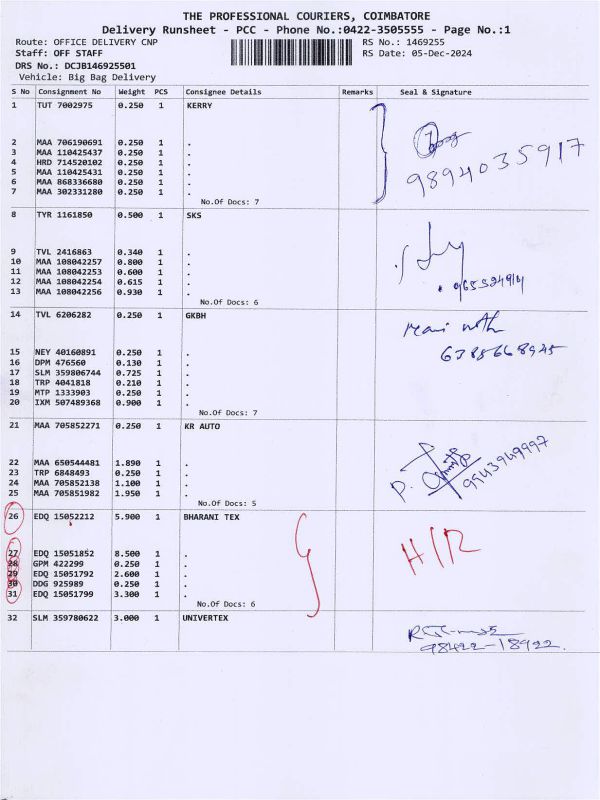 THE PROFESSIONAL COURIERS, COIMBATORE
Delivery Runsheet - PCC - Phone No.:0422-3505555 - Page No.:1
Route: OFFICE DELIVERY CNP RS No.: 1469255
Staff: OFF STAFF RS Date: 05-Dec-2024
DRS No.: DCJB146925501
Vehicle: Big Bag Delivery
S No Consignment No Weight PCS Consignee Details Remarks Seal & Signature
1 TUT 7002975 0.250 1 KERRY
2 MAA 706190691 0.250 1 .
3 MAA 110425437 0.250 1 .
4 HRD 714520102 0.250 1 .
5 MAA 110425431 0.250 1 .
6 MAA 868336680 0.250 1 .
7 MAA 302331280 0.250 1 .
9894035917
No.Of Docs: 7
8 TYR 1161850 0.500 1 SKS
9 TVL 2416863 0.340 1 .
10 MAA 108042257 0.800 1 .
11 MAA 108042253 0.600 1 .
12 MAA 108042254 0.615 1 .
13 MAA 108042256 0.930 1 .
No.Of Docs: 6
14 TVL 6206282 0.250 1 GKBH
15 NEY 40160891 0.250 1 .
6385668945
16 DPM 476560 0.130 1 .
17 SLM 359806744 0.725 1 .
18 TRP 4041818 0.210 1 .
19 MTP 1333903 0.250 1 .
20 IXM 507489368 0.900 1 .
No.Of Docs: 7
21 MAA 705852271 0.250 1 KR AUTO
22 MAA 650544481 1.890 1 .
23 TRP 6848493 0.250 1 .
24 MAA 705852138 1.100 1 .
25 MAA 705851982 1.950 1 .
P.
9543949997
No.Of Docs: 5
26 EDQ 15052212 5.900 1 BHARANI TEX
27 EDQ 15051852 8.500 1 .
28 GPM 422299 0.250 1 .
29 EDQ 15051792 2.600 1 .
30 DDG 925989 0.250 1 .
31 EDQ 15051799 3.300 1 .
H/R
No.Of Docs: 6
32 SLM 359780622 3.000 1 UNIVERTEX
98422-18922.